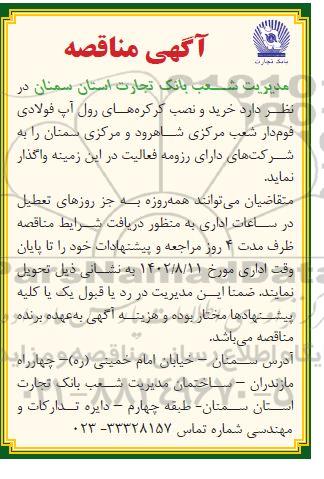 بانک تجارت
آگهی مناقصه
مدیریت شعب بانک تجارت استان سمنان در
نظر دارد خرید و نصب کرکره‌های رول آپ فولادی
فوم‌دار شعب مرکزی شاهرود و مرکزی سمنان را به
شرکت‌های دارای رزومه فعالیت در این زمینه واگذار
نماید.
متقاضیان می‌توانند همه‌روزه به جز روزهای تعطیل
در ساعات اداری به منظور دریافت شرایط مناقصه
ظرف مدت ۴ روز مراجعه و پیشنهادات خود را تا پایان
وقت اداری مورخ ۱۴۰۲/۸/۱۱ به نشانی ذیل تحویل
نمایند. ضمنا این مدیریت در رد یا قبول یک یا کلیه
پیشنهادها مختار بوده و هزینه آگهی به‌عهده برنده
مناقصه می‌باشد.
آدرس سمنان – خیابان امام خمینی (ره)– چهارراه
مازندران – ساختمان مدیریت شعب بانک تجارت
استان سمنان- طبقه چهارم – دایره تدارکات و
مهندسی شماره تماس ۳۳۳۲۸۱۵۷- ۰۲۳